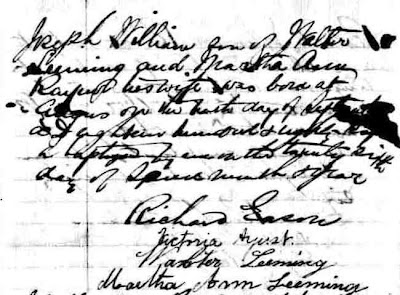 Joseph William son of Walter
Leeming and Martha Ann
his wife was born at
on the tenth day of
eighteen hundred & eighty
& baptized by me on the twenty fifth
day of same month & year
Richard Eason
Victoria
Walter Leeming
Martha Ann Leeming